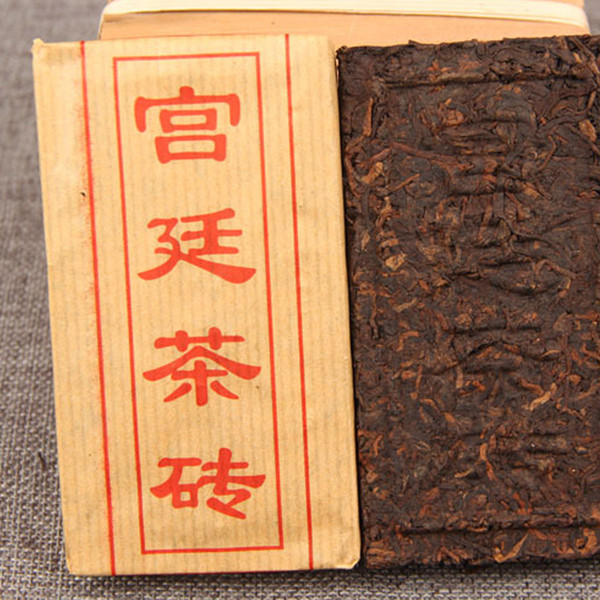 宫廷茶砖